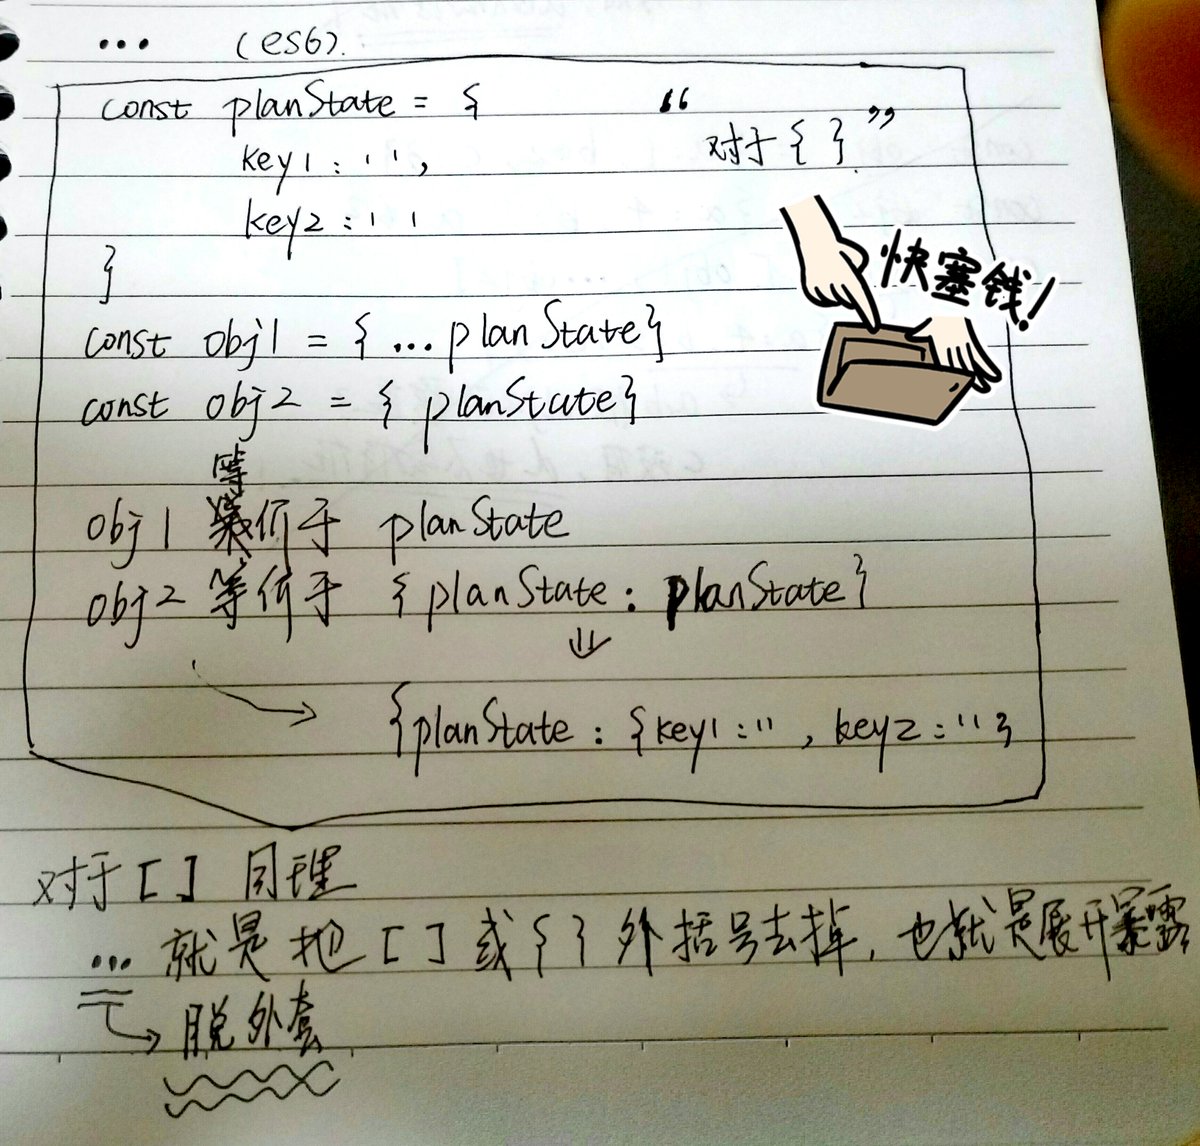 ... (es6).
const planState = {
“对于{ }”
key1 : '',
key2 : ''
}
快塞钱!
const obj1 = { ...planState}
const obj2 = { planState}
obj1 等价于 planState
obj2 等价于 { planState : planState}
⇓
→ {planState : {key1 : '' , key2 : '' }
对于 [ ] 同理
... 就是把 [ ] 或 { } 外括号去掉, 也就是展开暴露
→ 脱外套